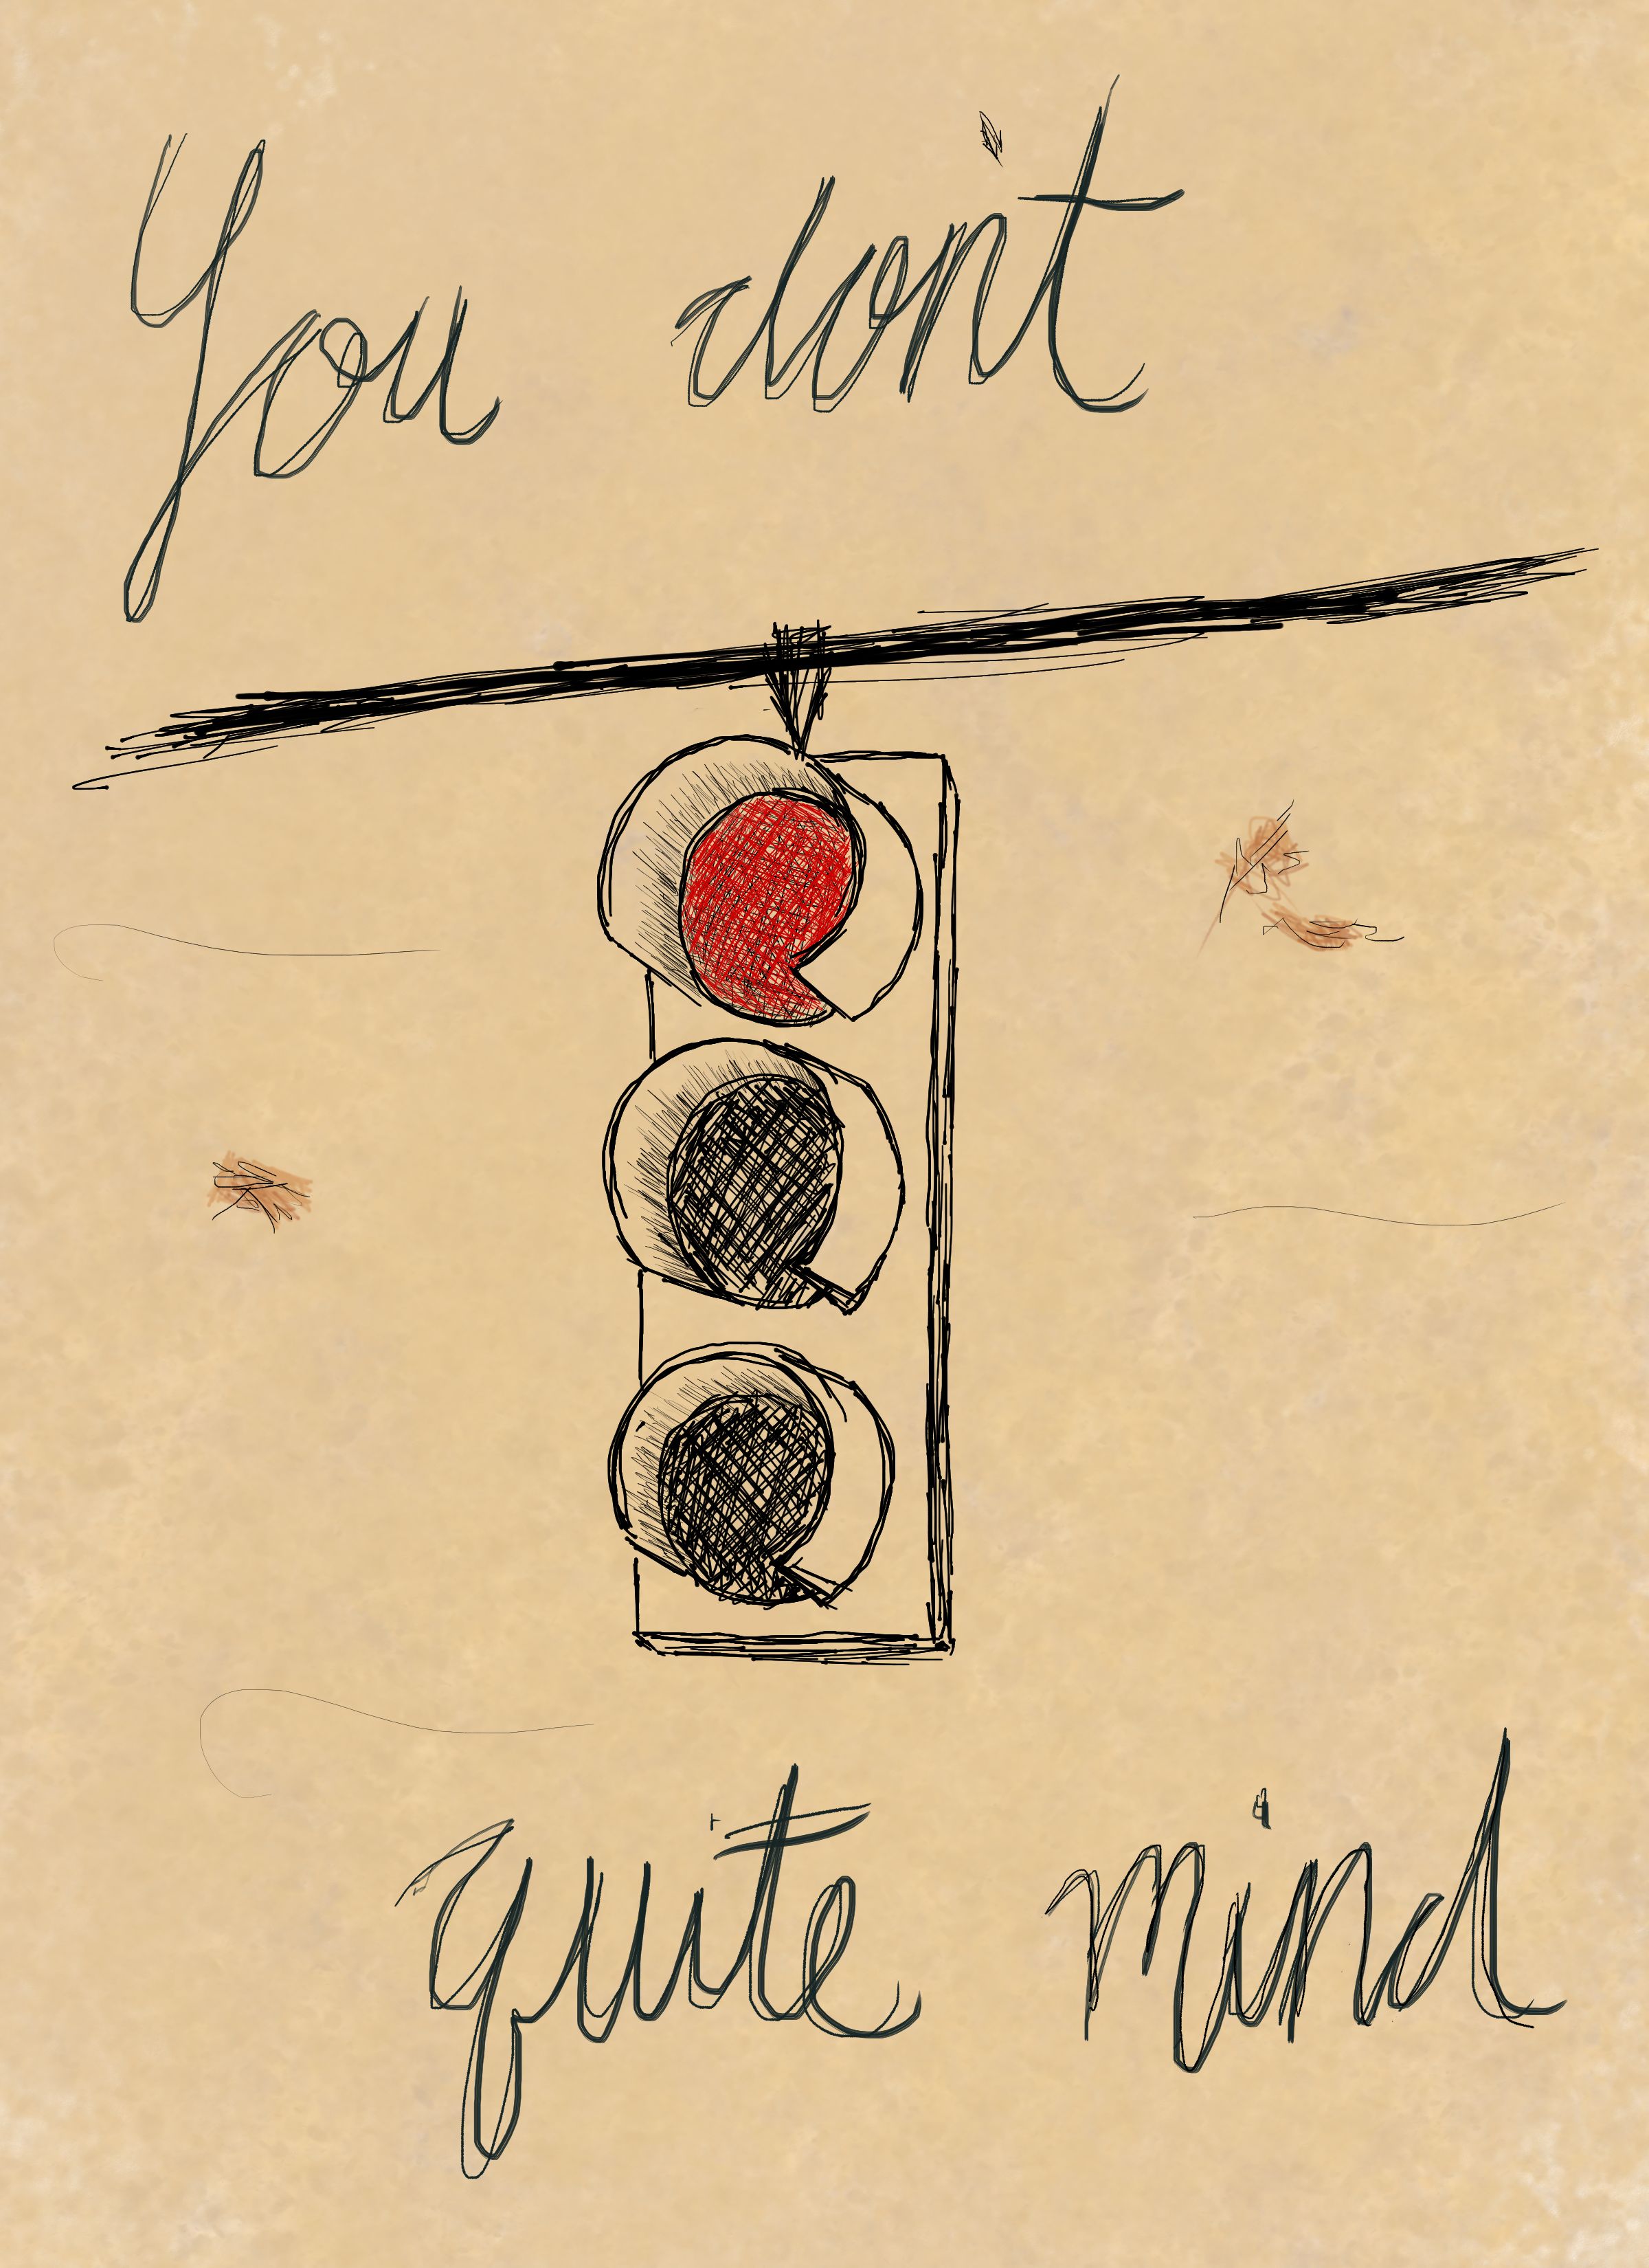 You don't
quite mind